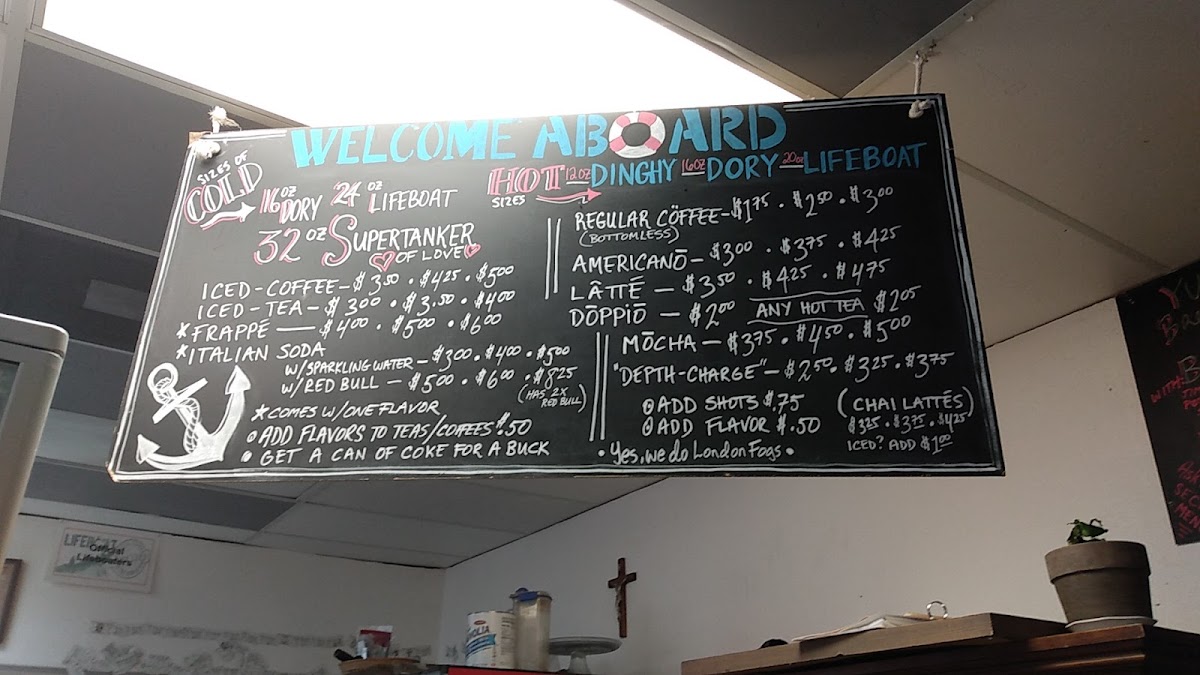 WELCOME ABOARD
SIZES OF
COLD
16oz DORY 24oz LIFEBOAT
32oz SUPERTANKER
OF LOVE
ICED-COFFEE-$3.50 . $4.25 . $5.00
ICED-TEA-$3.00 . $3.50 . $4.00
*FRAPPÉ — $4.00 . $5.00 . $6.00
*ITALIAN SODA
W/SPARKLING WATER-$3.00 . $4.00 . $5.00
W/RED BULL - $5.00 . $6.00 . $8.25
(HAS 2X
RED BULL)
*COMES W/ONE FLAVOR
ADD FLAVORS TO TEAS/COFFEES $.50
• GET A CAN OF COKE FOR A BUCK
HOT 12oz DINGHY 16oz DORY 20oz LIFEBOAT
SIZES
REGULAR CÖFFEE-$1.75 . $2.50 . $3.00
(BOTTOMLESS)
AMERICANŌ-$3.00 . $3.75 . $4.25
LÂTTÉ — $3.50 . $4.25 . $4.75
DŌPPIŌ - $2.00 ANY HOT TEA $2.05
MŌCHA-$3.75 . $4.50 . $5.00
"DEPTH-CHARGE"-$2.50 . $3.25 . $3.75
ADD SHOTS $.75
ADD FLAVOR $.50
(CHAI LATTÉS)
$3.25 . $3.75 . $4.25
ICED? ADD $1.00
• Yes, we do London Fogs •
LIFEBOAT
Official
Lifeboaters